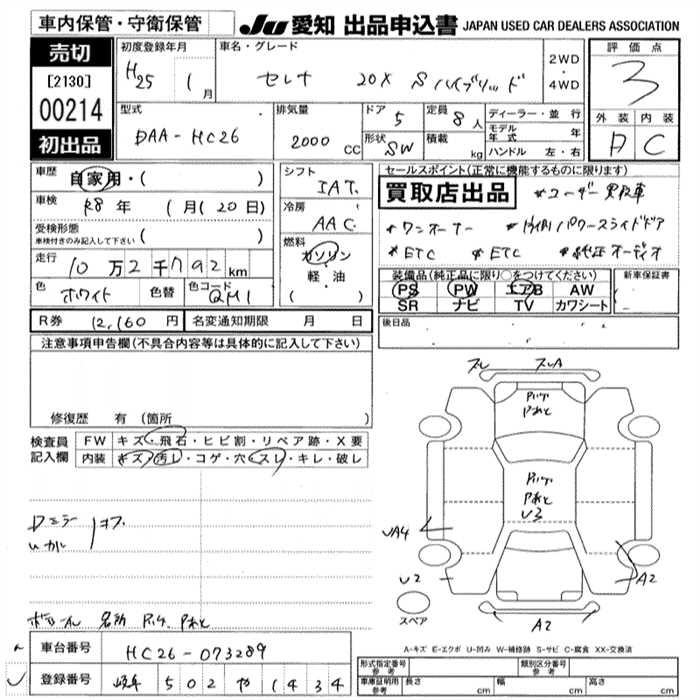 車内保管・守衛保管
JU 愛知 出品申込書 JAPAN USED CAR DEALERS ASSOCIATION
売切
[2130]
00214
初出品
初度登録年月
H25 1月
車名・グレード
セレナ 20X Sハイブリッド
2WD
・
4WD
評価点
3
外装 内装
A C
型式
DAA-HC26
排気量
2000 CC
ドア 5
定員 8人
形状 SW
積載 kg
ディーラー・並行
モデル年式 年
ハンドル 左・右
車歴 自家用・( )
車検 R8年 (1月(20日)
受検形態
車検付きのみ記入して下さい ( )
走行 10万2千792km
色 ホワイト 色替 色コード QM1
シフト
IAT
冷房
AAC
燃料
ガソリン
・
軽・油
( )
セールスポイント(正常に機能するものに限ります)
買取店出品 *ユーザー買取車
*ワンオーナー *片側パワースライドドア
*ETC *ETC *純正オーディオ
装備品(純正品に限り○をつけてください)
PS PW エアB AW
SR ナビ TV カワシート
新車保証書
R券 12,160円 名変通知期限 月 日
後日品
注意事項申告欄(不具合内容等は具体的に記入して下さい)
修復歴 有 (箇所
検査員
記入欄
FW キズ・飛石・ヒビ割・リペア跡・X要
内装 キズ・汚レ・コゲ・穴・スレ・キレ・破レ
Dミラー
キズ
ズレ ズレA
UA4
U2
U3
A2
A2
スペア
A-キズ E-エクボ U-凹み W-補修跡 S-サビ C-腐食 XX-交換済
車台番号 HC26-073289
登録番号 岐阜 502 や 1434
形式指定番号
参考
類別区分番号
参考
車庫証明用
参考
長さ cm 幅 cm 高さ cm